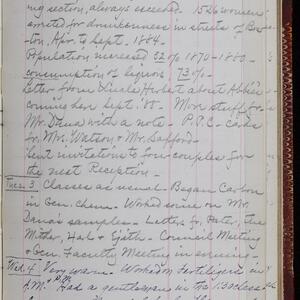 ing section, always exceeded. 1526 women
arrested for drunkenness in streets of Bos-
ton, Apr. to Sept. 1884.
Population increased 32% 1870-1880-
consumption of liquors, 73%-
Letter from Uncle Herbert about Abbie's
coming here Sept. '85- More stuff for
Mr. Dana with a note- P.P.C. cards
for Mr. Watson & Mr. Safford-
Sent invitations to four couples for
the next Reception-
Tues. 3 Classes as usual- Began Carbon
in Gen. Chem.- Worked some on Mr.
Dana's samples- Letters for Pater, the
Mither, Hal & Edith- Council Meeting
& Gen. Faculty Meeting in evening-
Wed. 4 Very warm- Worked on Fertilizers in
A.M. & P.M. Had a gentleman in the 1.30 class